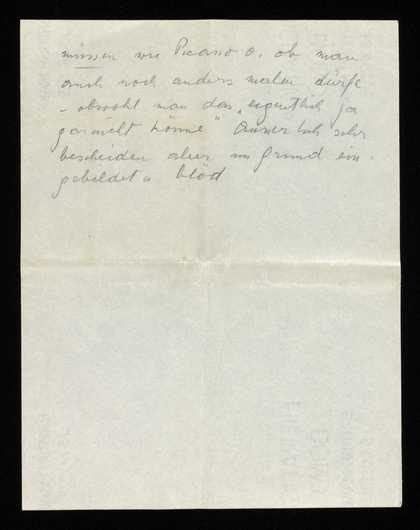 müssen wie Picasso o. ob man
auch noch anders malen dürfe
– obwohl man das „eigentlich ja
gar nicht könne" sehr
bescheiden aber im Grund ein-
gebildet u blöd